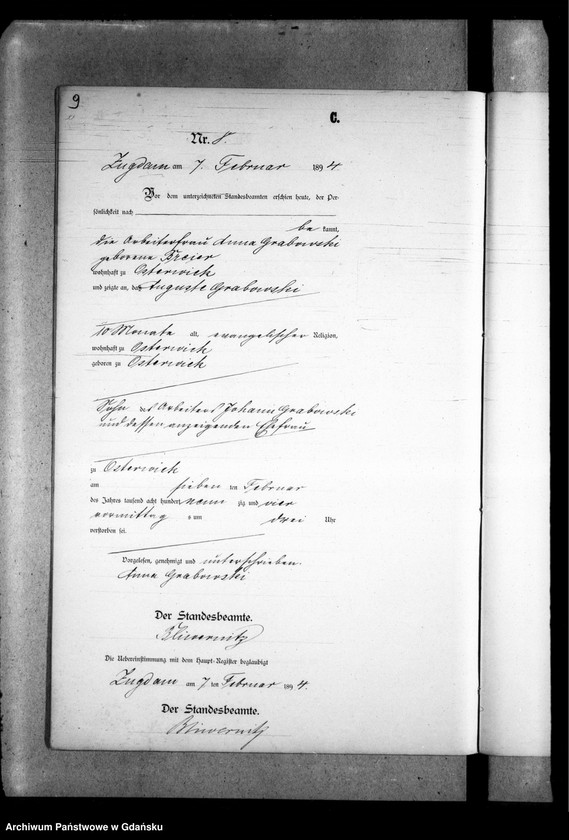 9
C.
Nr. 8.
Zugdam am 7. Februar 1894.
Vor dem unterzeichneten Standesbeamten erschien heute, der Per-
sönlichkeit nach
be kannt,
die Arbeiterfrau Anna Grabowski
geborene Breier
wohnhaft zu Osterwick
und zeigte an, daß Auguste Grabowski
10 Monate alt, evangelischer Religion,
wohnhaft zu Osterwick
geboren zu Osterwick
Sohn des Arbeiters Johann Grabowski
und dessen anzeigenden Ehefrau
zu Osterwick
am sieben ten Februar
des Jahres tausend acht hundert neun zig und vier
vormittag s um drei Uhr
verstorben sei.
Vorgelesen, genehmigt und unterschrieben.
Anna Grabowski
Der Standesbeamte.
Die Uebereinstimmung mit dem Haupt-Register beglaubigt
Zugdam am 7 ten Februar 1894.
Der Standesbeamte.
Archiwum Państwowe w Gdańsku